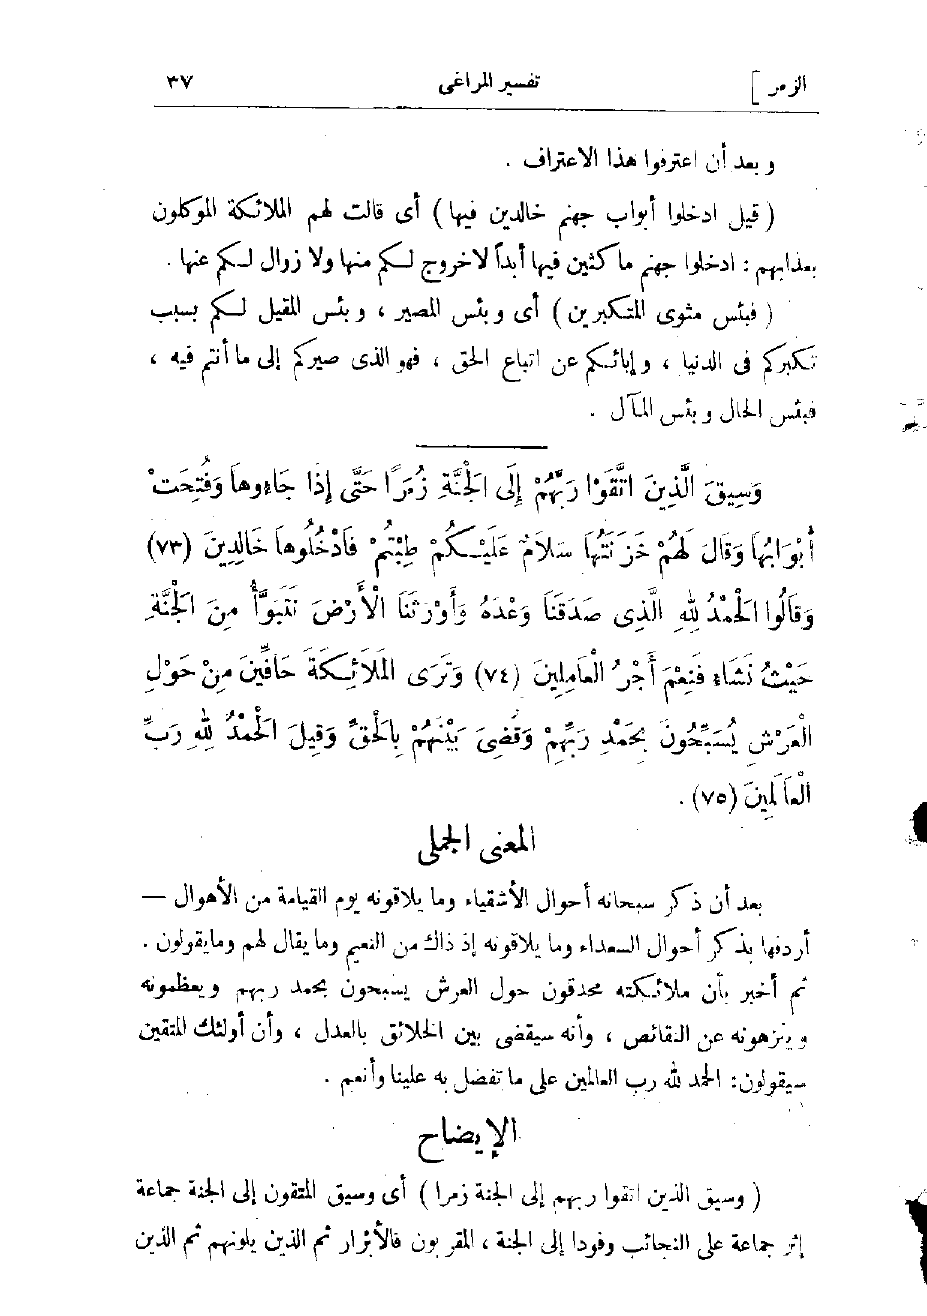 الزمر ] تفسير المراغى ٣٧
وبعد أن اعترفوا هذا الاعتراف .
( قيل ادخلوا أبواب جهنم خالدين فيها ) أى قالت لهم الملائكة الموكلون
بعذابهم : ادخلوا جهنم ماكثين فيها أبداً لاخروج لكم منها ولا زوال لكم عنها .
( فبئس مثوى المتكبرين ) أى وبئس المصير ، وبئس المقيل لكم بسبب
تكبركم فى الدنيا ، وإبائكم عن اتباع الحق ، فهو الذى صيركم إلى ما أنتم فيه ،
فبئس الحال وبئس المآل .
وَسِيقَ الَّذِينَ اتَّقَوْا رَبَّهُمْ إِلَى الْجَنَّةِ زُمَرًا حَتَّى إِذَا جَاءُوهاَ وَفُتِحَتْ
أَبْوَابُهَا وَقَالَ لَهُمْ خَزَنَتُهَا سَلاَمٌ عَلَيْكُمْ طِبْتُمْ فَادْخُلُوهاَ خَالِدِينَ (٧٣)
وَقَالُوا الْحَمْدُ لِلهِ الَّذِى صَدَقَنَا وَعْدَهُ وَأَوْرَثَنَا الْأَرْضَ نَتَبَوَّأُ مِنَ الْجَنَّةِ
حَيْثُ نَشَاءُ فَنِعْمَ أَجْرُ الْعَامِلِينَ (٧٤) وَتَرَى الْمَلاَئِكَةَ حَافِّينَ مِنْ حَوْلِ
الْعَرْشِ يُسَبِّحُونَ بِحَمْدِ رَبِّهِمْ وَقُضِىَ بَيْنَهُمْ بِالْحَقِّ وَقِيلَ الْحَمْدُ لِلهِ رَبِّ
الْعَالَمِينَ (٧٥) .
المعنى الجملى
بعد أن ذكر سبحانه أحوال الأشقياء وما يلاقونه يوم القيامة من الأهوال —
أردفها بذكر أحوال السعداء وما يلاقونه إذ ذاك من النعيم وما يقال لهم وما يقولون .
ثم أخبر بأن ملائكته محدقون حول العرش يسبحون بحمد ربهم ويعظمونه
وينزهونه عن النقائص ، وأنه سيقضى بين الخلائق بالعدل ، وأن أولئك المتقين
سيقولون : الحمد لله رب العالمين على ما تفضل به علينا وأنعم .
الإيضاح
( وسيق الذين اتقوا ربهم إلى الجنة زمرا ) أى وسيق المتقون إلى الجنة جماعة
إثر جماعة على النجائب وفودا إلى الجنة ، المقربون فالأبرار ثم الذين يلونهم ثم الذين